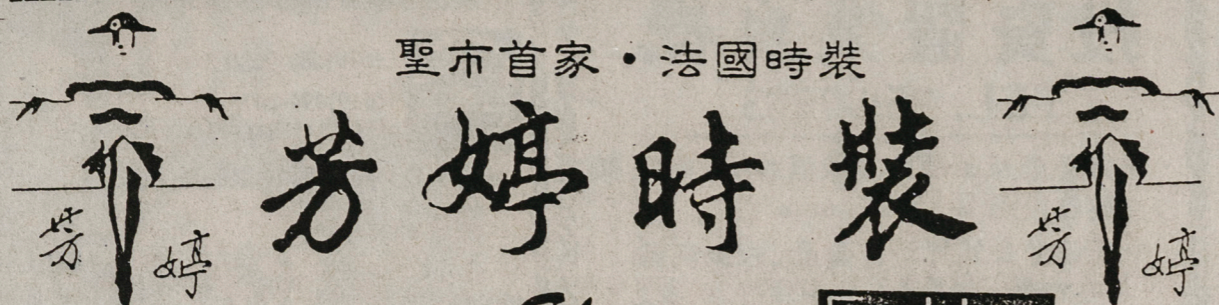 聖市首家・法國時裝
芳婷時裝
芳婷
芳婷